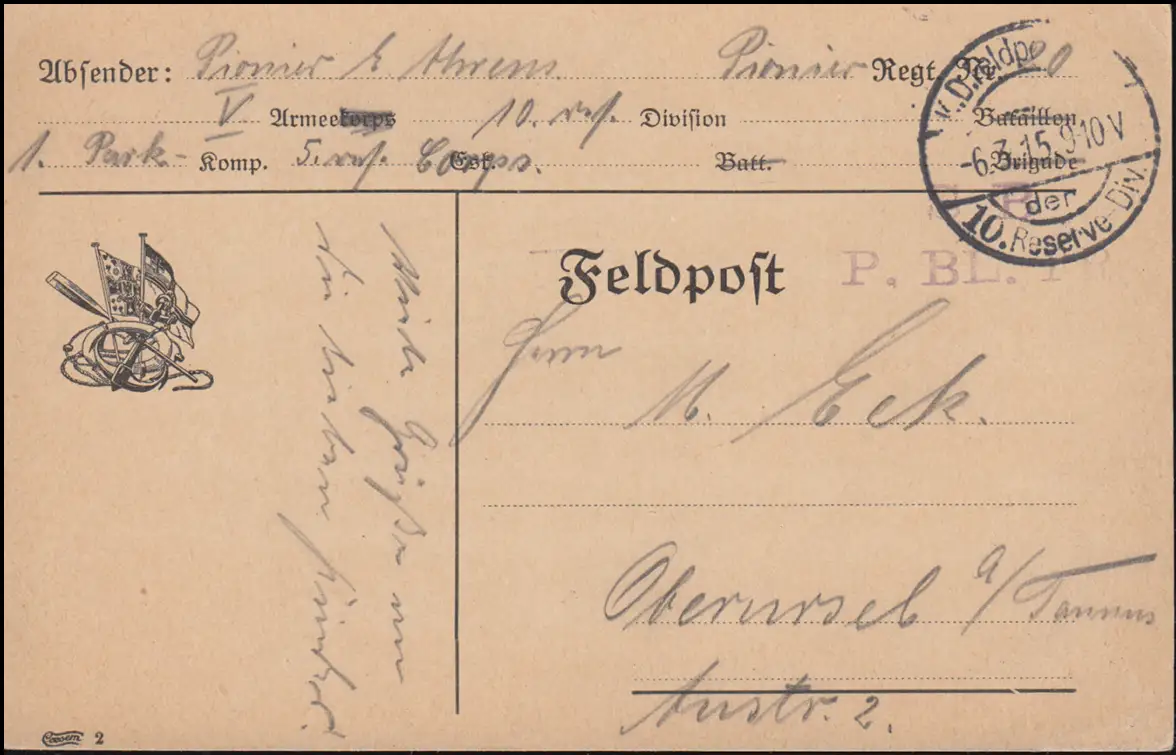 Absender: Pionier E Ahrens Pionier Regt. Nr. 20
V Armeekorps 10. res. Division Bataillon
1. Park- Komp. 5. res. Corps. Esk. Batt. Brigade
K.D.Feldpo
-6.3.15.9-10V
der
10. Reserve-Div.
S. B.
P. BL. PR
Feldpost
Herrn
M. Eck.
Oberursel a/Taunus
Austr. 2.
Viele Grüße an
die lieben
Coosem 2